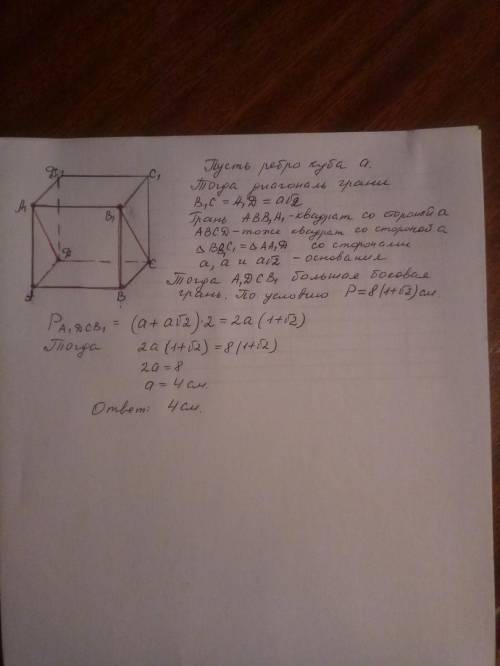 Д₁
C₁
A₁
B₁
Д
C
A
B
Пусть ребро куба a.
Тогда диагональ грани
B₁C = A₁Д = a√2
Грань ABB₁A₁ - квадрат со стороной a
ABCД - тоже квадрат со стороной a
△BB₁C₁ = △AA₁Д со сторонами
a, a и a√2 - основания
Тогда A₁ДCB₁ большая боковая
грань. По условию P = 8(1+√2) см.
P A₁ДCB₁ = (a + a√2)·2 = 2a(1+√2)
Тогда 2a(1+√2) = 8(1+√2)
2a = 8
a = 4 см.
Ответ: 4 см.